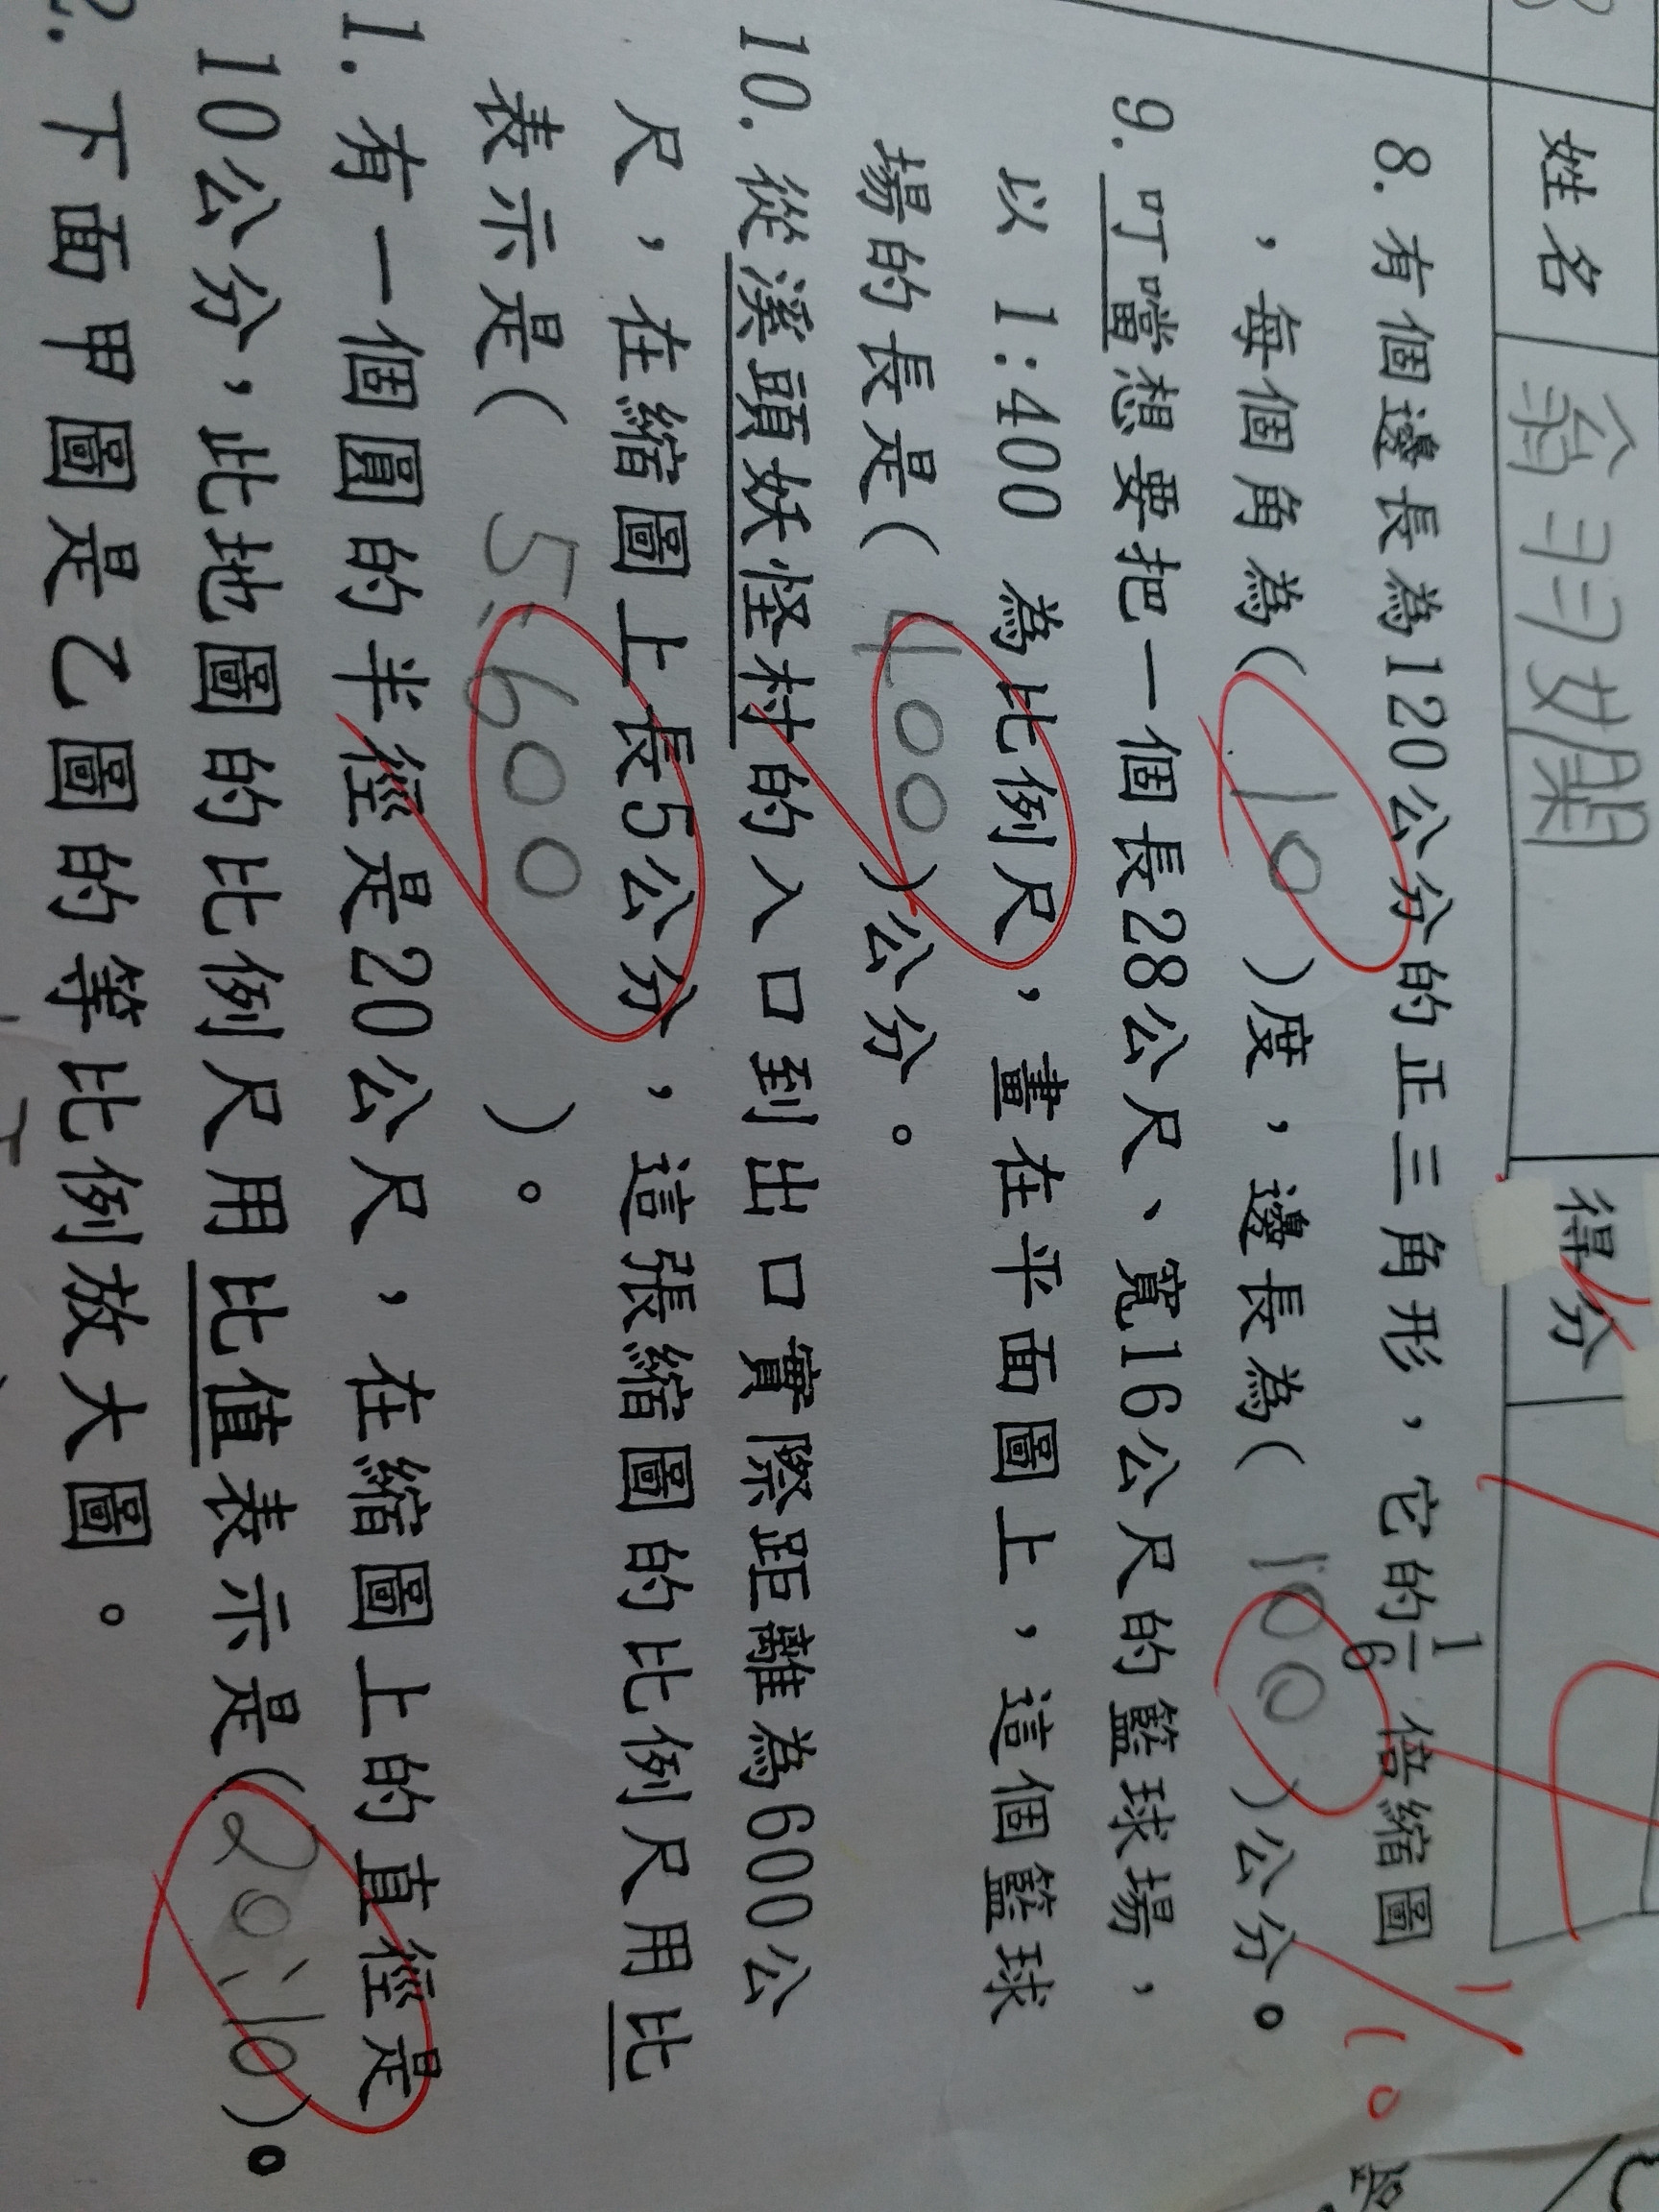 姓名 得分
8. 有個邊長為120公分的正三角形，它的1/6倍縮圖
，每個角為( 10 )度，邊長為( 100 )公分。
9. 叮噹想要把一個長28公尺、寬16公尺的籃球場，
以 1:400 為比例尺，畫在平面圖上，這個籃球
場的長是( 400 )公分。
10. 從溪頭妖怪村的入口到出口實際距離為600公
尺，在縮圖上長5公分，這張縮圖的比例尺用比
表示是( 5:600 )。
1. 有一個圓的半徑是20公尺，在縮圖上的直徑是
10公分，此地圖的比例尺用比值表示是(20:10)。
2. 下面甲圖是乙圖的等比例放大圖。